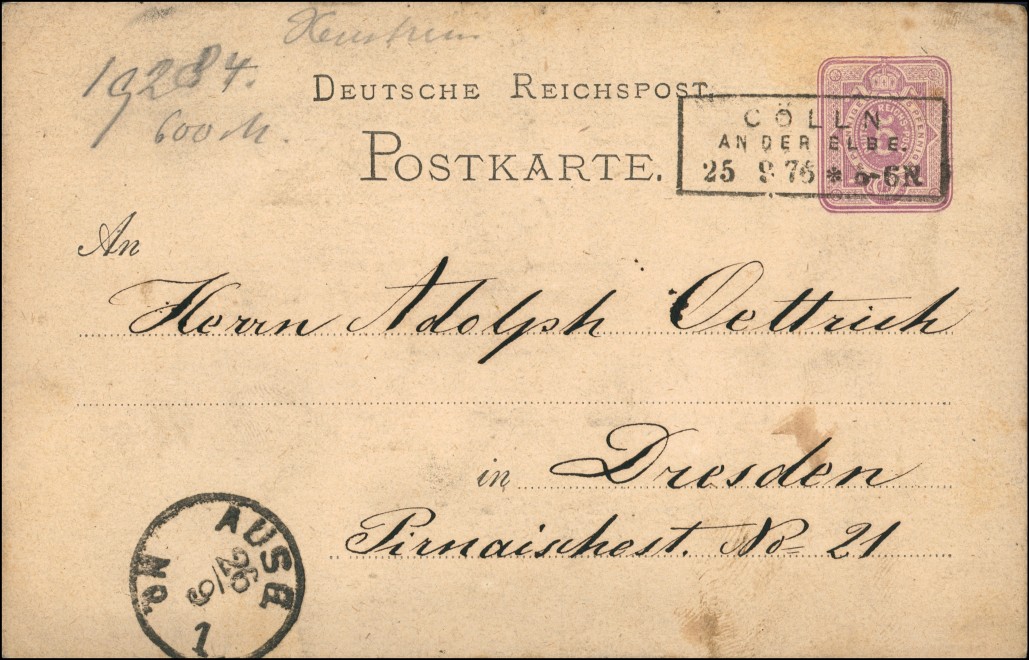 19284.
600 M.
DEUTSCHE REICHSPOST.
POSTKARTE.
CÖLLN
AN DER ELBE.
25 9 76 * 5-6N.
An
Herrn Adolph Oettrich
in Dresden
Pirnaischest. No 21
AUSG
26/9
No 1